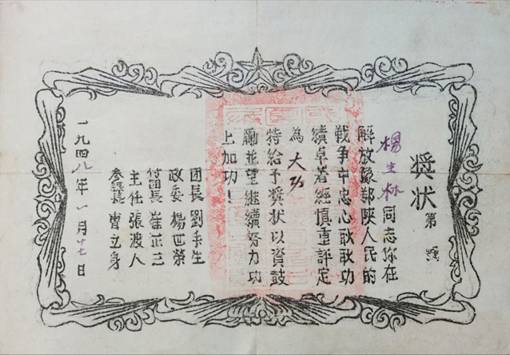 奨状
第 號
楊生林同志你在
解放豫鄂陝人民的
戰争中忠心耿耿功
績卓著經慎重評定
為大功
特給予奨状以資鼓
勵並望繼續努力功
上加功！
团長 劉 生
政委 楊世榮
付団長 崔正三
主任 張渡人
参謀長 曹立身
一九四八年一月廿七日